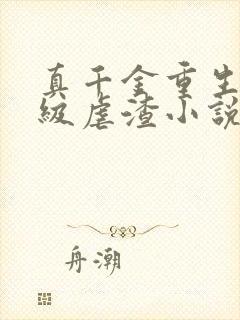 真千金重生
级虐渣小説
舟潮